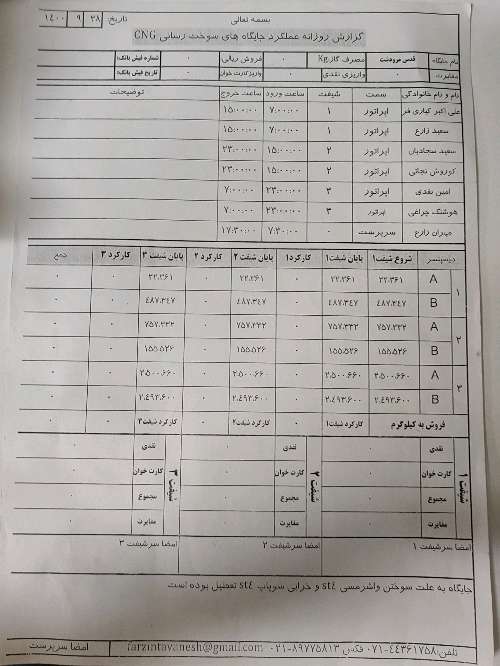 بسمه تعالی
تاریخ: ۲۸ ۹ ۱۴۰۰
گزارش روزانه عملکرد جایگاه های سوخت رسانی CNG
نام جایگاه: قدس مرودشت مصرف گاز:Kg ۰ فروش ریالی ۰ شماره فیش بانک: ۰
مغایرت: ۰ واریزی نقدی ۰ واریز کارت خوان ۰ تاریخ فیش بانک: ۰
نام و نام خانوادگی سمت شیفت ساعت ورود ساعت خروج توضیحات
علی اکبر کیاری فر اپراتور ۱ ۷:۰۰:۰۰ ۱۵:۰۰:۰۰
سعید زارع اپراتور ۱ ۷:۰۰:۰۰ ۱۵:۰۰:۰۰
سعید سجادیان اپراتور ۲ ۱۵:۰۰:۰۰ ۲۳:۰۰:۰۰
کوروش نجاتی اپراتور ۲ ۱۵:۰۰:۰۰ ۲۳:۰۰:۰۰
امین نقدی اپراتور ۳ ۲۳:۰۰:۰۰ ۷:۰۰:۰۰
هوشنگ چراغی اپراتور ۳ ۲۳:۰۰:۰۰ ۷:۰۰:۰۰
مهران زارع سرپرست ۰ ۷:۳۰:۰۰ ۱۷:۳۰:۰۰
دیسپنسر شروع شیفت۱ پایان شیفت۱ کارکرد۱ پایان شیفت ۲ کارکرد ۲ پایان شیفت ۳ کارکرد ۳ جمع
۱ A ۲۲.۳۶۱ ۲۲.۳۶۱ ۰ ۲۲.۳۶۱ ۰ ۲۲.۳۶۱ ۰ ۰
B ۴۸۷.۳۴۷ ۴۸۷.۳۴۷ ۰ ۴۸۷.۳۴۷ ۰ ۴۸۷.۳۴۷ ۰ ۰
۲ A ۷۵۷.۳۳۳ ۷۵۷.۳۳۳ ۰ ۷۵۷.۳۳۳ ۰ ۷۵۷.۳۳۳ ۰ ۰
B ۱۵۵.۵۲۶ ۱۵۵.۵۲۶ ۰ ۱۵۵.۵۲۶ ۰ ۱۵۵.۵۲۶ ۰ ۰
۳ A ۳.۵۰۰.۶۶۰ ۳.۵۰۰.۶۶۰ ۰ ۳.۵۰۰.۶۶۰ ۰ ۳.۵۰۰.۶۶۰ ۰ ۰
B ۲.۴۹۳.۶۰۰ ۲.۴۹۳.۶۰۰ ۰ ۲.۴۹۳.۶۰۰ ۰ ۲.۴۹۳.۶۰۰ ۰ ۰
فروش به کیلوگرم کارکرد شیفت۱ ۰ کارکرد شیفت۲ ۰ کارکرد شیفت۳ ۰ ۰
شیفت ۱ نقدی ۰ شیفت ۲ نقدی ۰ شیفت ۳ نقدی ۰
کارت خوان ۰ کارت خوان ۰ کارت خوان ۰
مجموع ۰ مجموع ۰ مجموع ۰
مغایرت ۰ مغایرت ۰ مغایرت ۰
امضا سرشیفت ۱ امضا سرشیفت ۲ امضا سرشیفت ۳
جایگاه به علت سوختن واشرمسی st٤ و خرابی سوپاپ st٤ تعطیل بوده است
تلفن:۴۴۳۶۱۷۵۸-۰۷۱ فکس ۸۹۷۷۵۸۱۳-۰۲۱ farzintavanesh@gmail.com امضا سرپرست